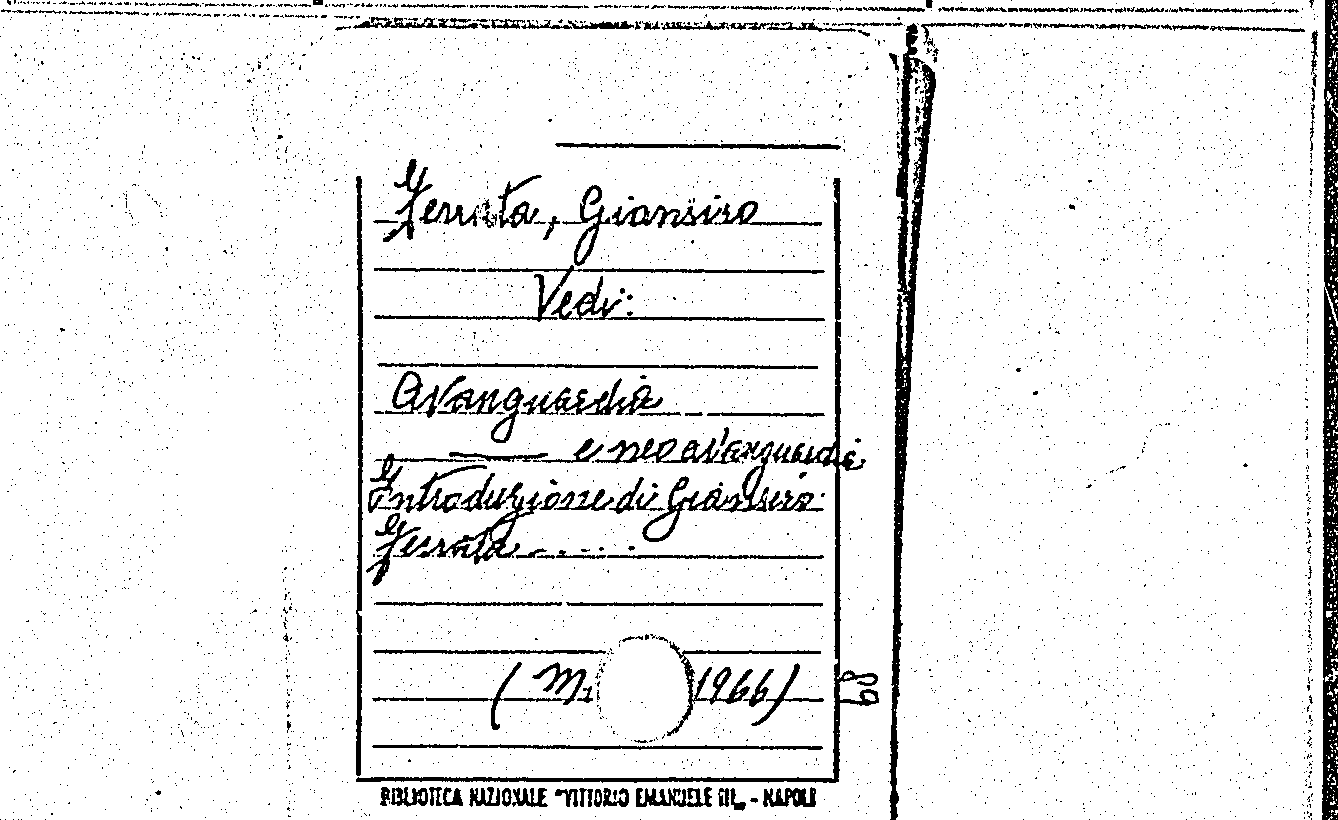 Ferrata, Giansiro
Vedi:
Avanguardia
—— e neoavanguardia
Introduzione di Giansiro
Ferrata.....
(Mi 1966)
69
BIBLIOTECA NAZIONALE "VITTORIO EMANUELE III„ - NAPOLI